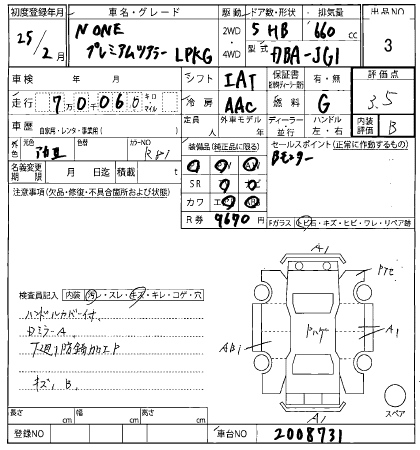 初度登録年月 車名・グレード 駆動 ドア数・形状 排気量 出品NO
25/2月 N ONE プレミアムツアラー LPKG 2WD 4WD 5 HB 660 cc 3
型式 DBA-JG1
車検 年 月 シフト IAT 保証書 有・無 評価点
走行 7万0060 キロ・マイル 冷房 AAC 燃料 G 3.5
車歴 自家用・レンタ・事業用( ) 定員 人 外車モデル 年 ディーラー 並行 ハンドル 左・右 内装評価 B
外色 元色 色替 カラーNO R81
装備品(純正品に限る) セールスポイント(正常に作動するもの)
名義変更期限 月 日迄 積載 t
SR
カワ
R券 9670 円
注意事項(欠品・修復・不具合箇所および状態)
Fガラス トビ石・キズ・ヒビ・ワレ・リペア跡
A1
検査員記入 内装 汚レ・スレ・キズ・キレ・コゲ・穴
ハンドルカバー付
A1
下廻り防錆加工P
キズ B
A1
スペア
長さ cm 幅 cm 高さ cm
登録NO 車台NO 2008731